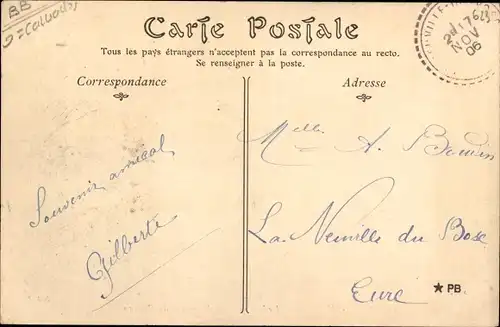 BB
Carte Postale
Tous les pays étrangers n'acceptent pas la correspondance au recto.
Se renseigner à la poste.
Correspondance
Adresse
17
NOV
06
Souvenir amical
Gilberte
Melle A.
La Neuville du Bosc
Eure
★ PB